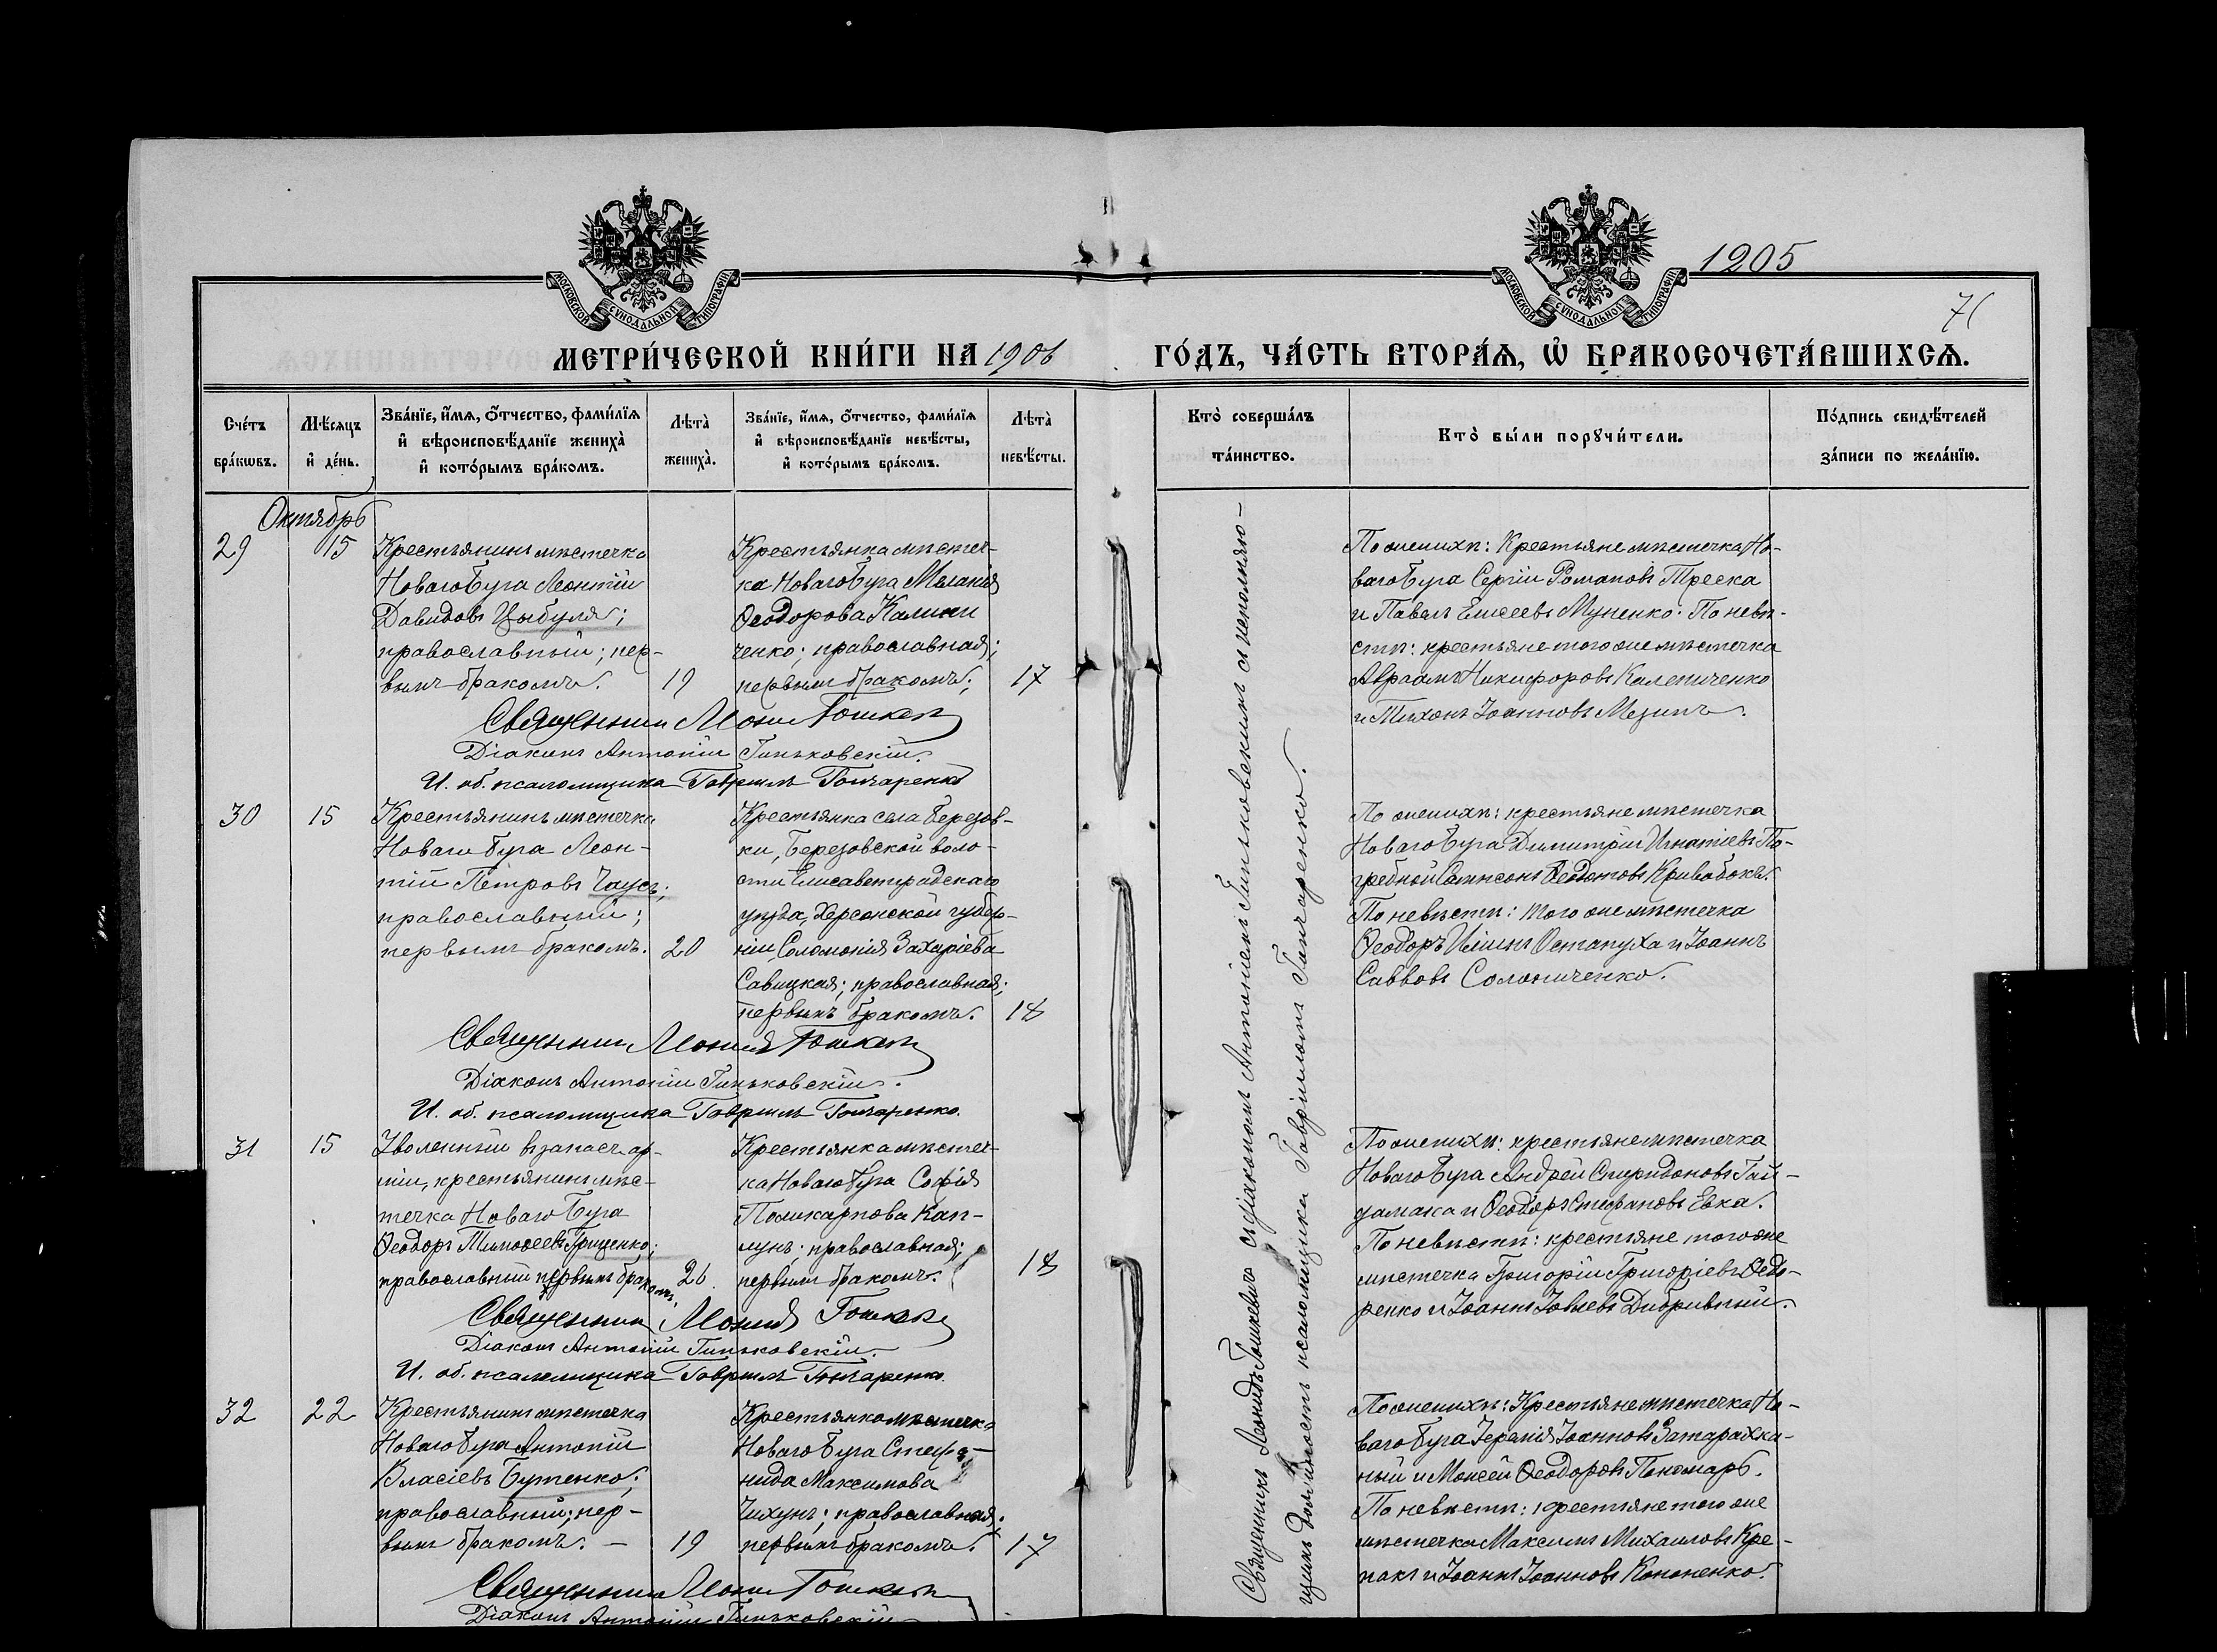 1905
71
МОСКОВСКОЙ СѴНОДАЛЬНОЙ ТИПОГРАФІИ
МОСКОВСКОЙ СѴНОДАЛЬНОЙ ТИПОГРАФІИ
МЕТРИ́ЧЕСКОЙ КНИ́ГИ НА 1906 ГО́ДЪ, ЧА́СТЬ ВТОРА́Ѧ, Ѽ БРАКОСОЧЕТА́ВШИХСѦ.
Сче́тъ
бра́кѡвъ.
Мѣ́сяцъ
и҆ де́нь.
Зва́нїе, и҆́мѧ, ѻ҆́тчество, фами́лїѧ
и҆ вѣроисповѣ́данїе жениха̀
и҆ кото́рымъ бра́комъ.
Лѣта̀
жениха̀.
Зва́нїе, и҆́мѧ, ѻ҆́тчество, фами́лїѧ
и҆ вѣроисповѣ́данїе невѣ́сты,
и҆ кото́рымъ бра́комъ.
Лѣта̀
невѣ́сты.
Кто̀ соверша́лъ
та́инство.
Кто̀ бы́ли порꙋчи́тели.
По́дпись свидѣ́телей
за́писи по жела́нїю.
Октябрь
29
15
Крестьянинъ мѣстечка
Новаго Буга Леонтій
Давидовъ Цыбуля;
православный; пер-
вымъ бракомъ.
19
Крестьянка мѣстеч-
ка Новаго Буга Меланія
Ѳеодорова Калини
ченко; православная;
первымъ бракомъ;
17
По женихѣ: Крестьяне мѣстечка Но-
ваго Буга Сергій Романовъ Треска
и Павелъ Елисеевъ Муненко. По невѣ-
стѣ: крестьяне того же мѣстечка
Авраамъ Никифоровъ Калениченко
и Тихонъ Іоанновъ Мезинъ.
Священникъ Леонидъ Гошкевичъ
Діаконъ Антоній Гиньковскій.
И. об. псаломщика Гавріилъ Гончаренко
30
15
Крестьянинъ мѣстечка
Новаго Буга Леон-
тій Петровъ Чаусъ;
православный;
первымъ бракомъ.
20
Крестьянка села Березов-
ки, Березовской воло-
сти Елисаветградскаго
уѣзда, Херсонской губер-
ніи, Соломонія Захаріева
Савицкая; православная;
первымъ бракомъ.
18
По женихѣ: крестьяне мѣстечка
Новаго Буга Димитрій Игнатіевъ По-
гребной Сампсонъ Ѳеодотовъ Кривобокъ.
По невѣстѣ: того же мѣстечка
Ѳеодоръ Иліинъ Остапуха и Іоаннъ
Саввовъ Солониченко.
Священникъ Леонидъ Гошкевичъ
Діаконъ Антоній Гиньковскій.
И. об. псаломщика Гавріилъ Гончаренко.
31
15
Уволенный въ запасъ ар-
міи, крестьянинъ мѣс-
течка Новаго Буга
Ѳеодоръ Тимоѳеевъ Грищенко;
православный первымъ бракомъ,
26.
Крестьянка мѣстеч-
ка Новаго Буга Софія
Поликарпова Кап-
лунъ; православная;
первымъ бракомъ.
18
По женихѣ: крестьяне мѣстечка
Новаго Буга Андрей Спиридоновъ Гай-
дамака и Ѳеодоръ Стефановъ Евка.
По невѣстѣ: крестьяне того же
мѣстечка Григорій Григоріевъ Ѳедо-
ренко и Іоаннъ Іовлевъ Дибривный.
Священникъ Леонидъ Гошкевичъ
Діаконъ Антоній Гиньковскій.
И. об. псаломщика Гавріилъ Гончаренко.
32
22
Крестьянинъ мѣстечка
Новаго Буга Антоній
Власіевъ Бутенко;
православный; пер-
вымъ бракомъ. —
19
Крестьянка мѣстечка
Новаго Буга Стефа-
нида Максимова
Чихунъ; православная;
первымъ бракомъ.
17
По женихѣ: Крестьяне мѣстечка Но-
ваго Буга Іеремія Іоанновъ
и Моисей Ѳеодоровъ Пономарь.
По невѣстѣ: крестьяне того же
мѣстечка Максимъ Михаиловъ Кре-
пакъ и Іоаннъ Іоанновъ Кононенко.
Священникъ Леонидъ Гошкевичъ
Діаконъ Антоній Гиньковскій
Священникъ Леонидъ Гошкевичъ съ діакономъ Антоніемъ Гиньковскимъ и исполняю-
щимъ должность псаломщика Гавріиломъ Гончаренко.